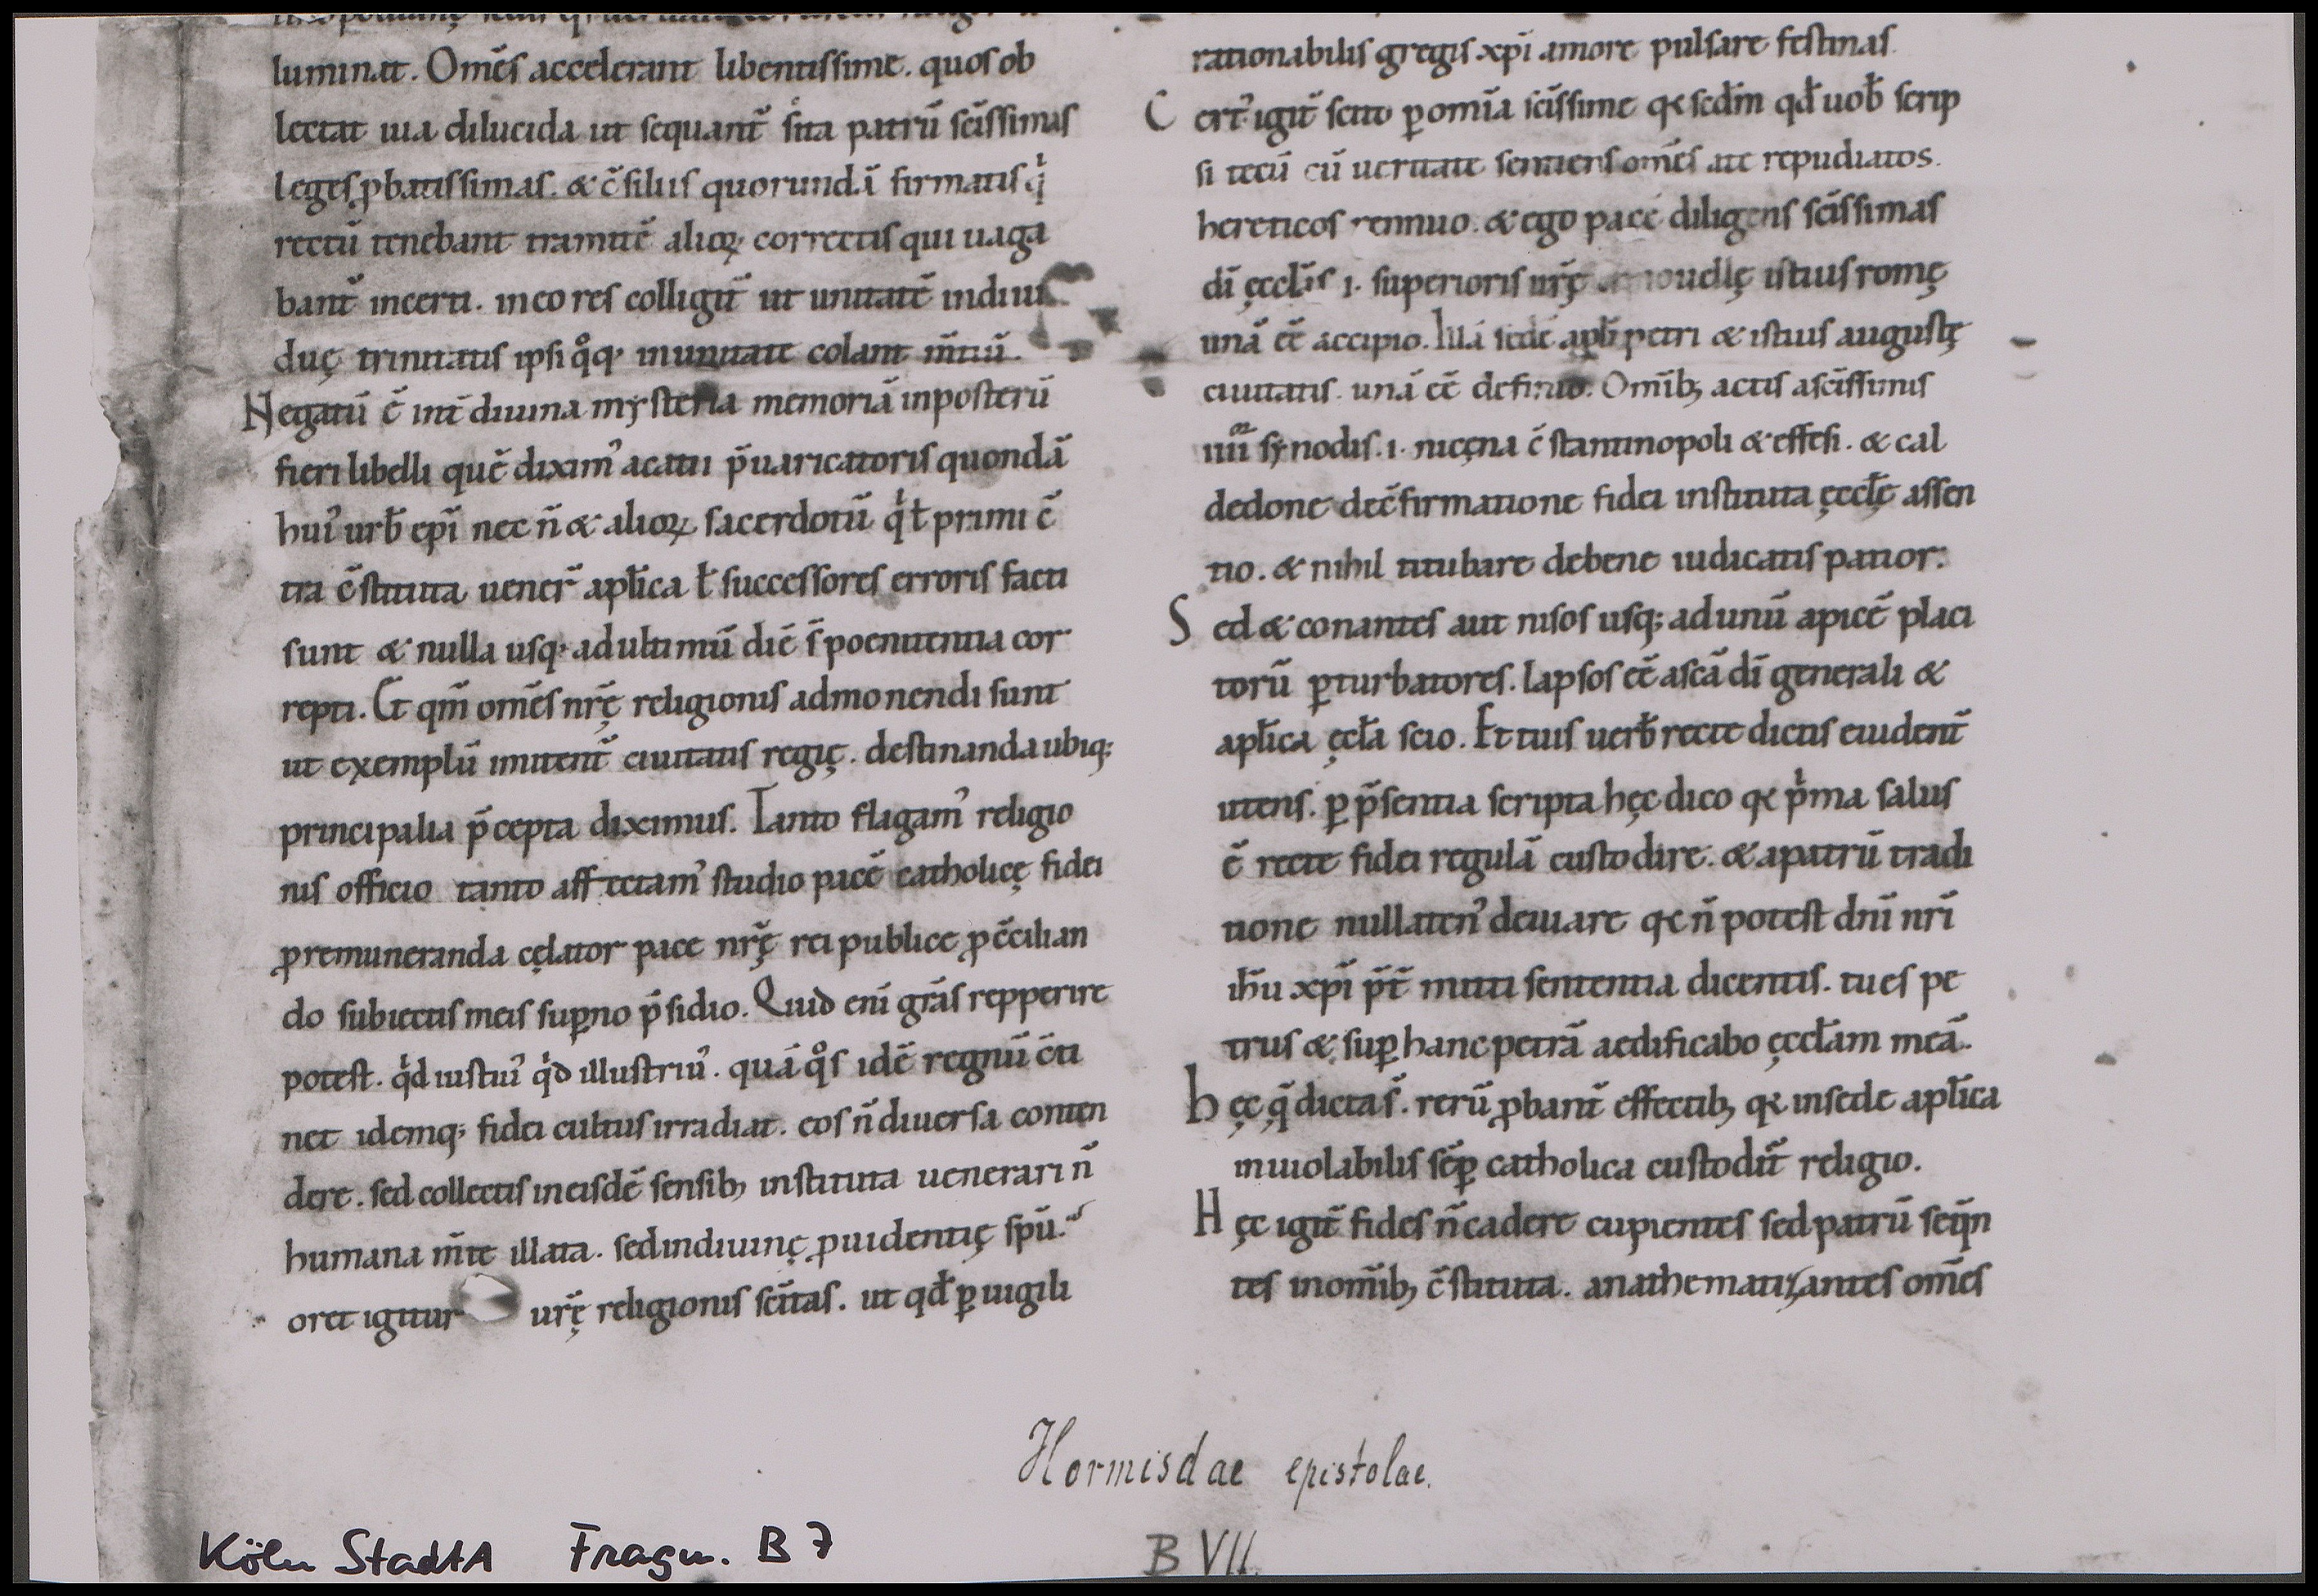 luminat. Om̄s accelerant libentissime. quos ob
lectat uia dilucida ut sequant̄ sita patrū sc̄issimas
leges ꝓbatissimas. & c̄siliis quorundā firmatis qͥ
rectū tenebant tramitē alioꝝ correctis qui uaga
bant̄ incerti. in eo res colligit̄ ut unitatē indiui
duę trinitatis ipsi qͦq; in unitate colant m̄tiū.
Negatū ē int̄ diuina mysteria memoriā inposterū
fieri libelli quē diximꝰ acatii p̄uaricatoris quondā
huiꝰ urb̄ ep̄i nec n̄ & alioꝝ sacerdotū qͥ ł primi c̄
tra c̄stituta uener̄ apłica ł successores erroris facti
sunt & nulla usq; ad ultimū diē s̄ poenitentia cor
repti. Et qm̄ om̄s nr̄ę religionis admonendi sunt
ut exemplū imitent̄ ciuitatis regię. destinanda ubiq;
principalia p̄cepta diximus. Tanto flagamꝰ religio
nis officio tanto affectamꝰ studio pacē catholicę fidei
ꝓ remuneranda cęlator pace nr̄ę rei publice ꝓ c̄cilian
do subiectis meis suꝑno p̄sidio. Quid eni grā̄s repperire
potest. qͥd iustiuꝰ qͥd illustriuꝰ. quā qͦs idē regnū c̄ti
net idemq; fidei cultus irradiat. eos n̄ diuersa conten
dere. sed collectis in eisdē sensib; instituta uenerari n̄
humana m̄te illata. sed indiuinę ꝓuidentię sp̄u.
oret igitur urę̄ religionis sc̄itas. ut qd̄ ꝑ uigili
rationabilis gregis xp̄i amore pulsare festinas.
Cert̄ igit̄ scito ꝑ omīa sc̄issime qꝛ scd̄m qd̄ uob̄ scrip
si tecū cū ueritate sentiens om̄s a te repudiatos.
hereticos rennuo. & ego pacē diligens sc̄issimas
dī ęcclīs .i. superioris ur̄ę & nouellę istius romę
unā eē accipio. Illā sedē apłi petri & istius augustę
ciuitatis. unā eē definio. Om̄ib; actis a sc̄issimis
iiiiᵒʳ synodis .i. nicęna c̄stantinopoli & effesi. & cal
dedone de c̄firmatione fidei instituta ęccłę assen
tio. & nihil titubare de bene iudicatis patior.
Sed & conantes aut nisos usq; ad unū apicē placi
torū ꝑturbatores. lapsos eē a scā dī generali &
apłica ęcła scio. Et tuis uerb̄ recte dictis euident̄
utens. ꝑ p̄sentia scripta hęc dico qꝛ pͥma salus
ē recte fidei regulā custodire. & a patrū tradi
tione nullatenꝰ deuiare qꝛ n̄ potest dn̄i nr̄i
ih̄u xp̄i p̄t̄ mitti sententia dicentis. tu es pe
trus & suꝑ hanc petrā aedificabo ęccłam meā.
hęc q̄ dicta s̄. rerū ꝓbant̄ effectib; qꝛ in sede apłica
inuiolabilis sēꝑ catholica custodit̄ religio.
Hęc igit̄ fides n̄ cadere cupientes sed patrū seq̄n
tes in om̄ib; c̄stituta. anathematizantes om̄s
Hormisdae epistolae.
Köln StadtA Fragm. B 7
B VII.